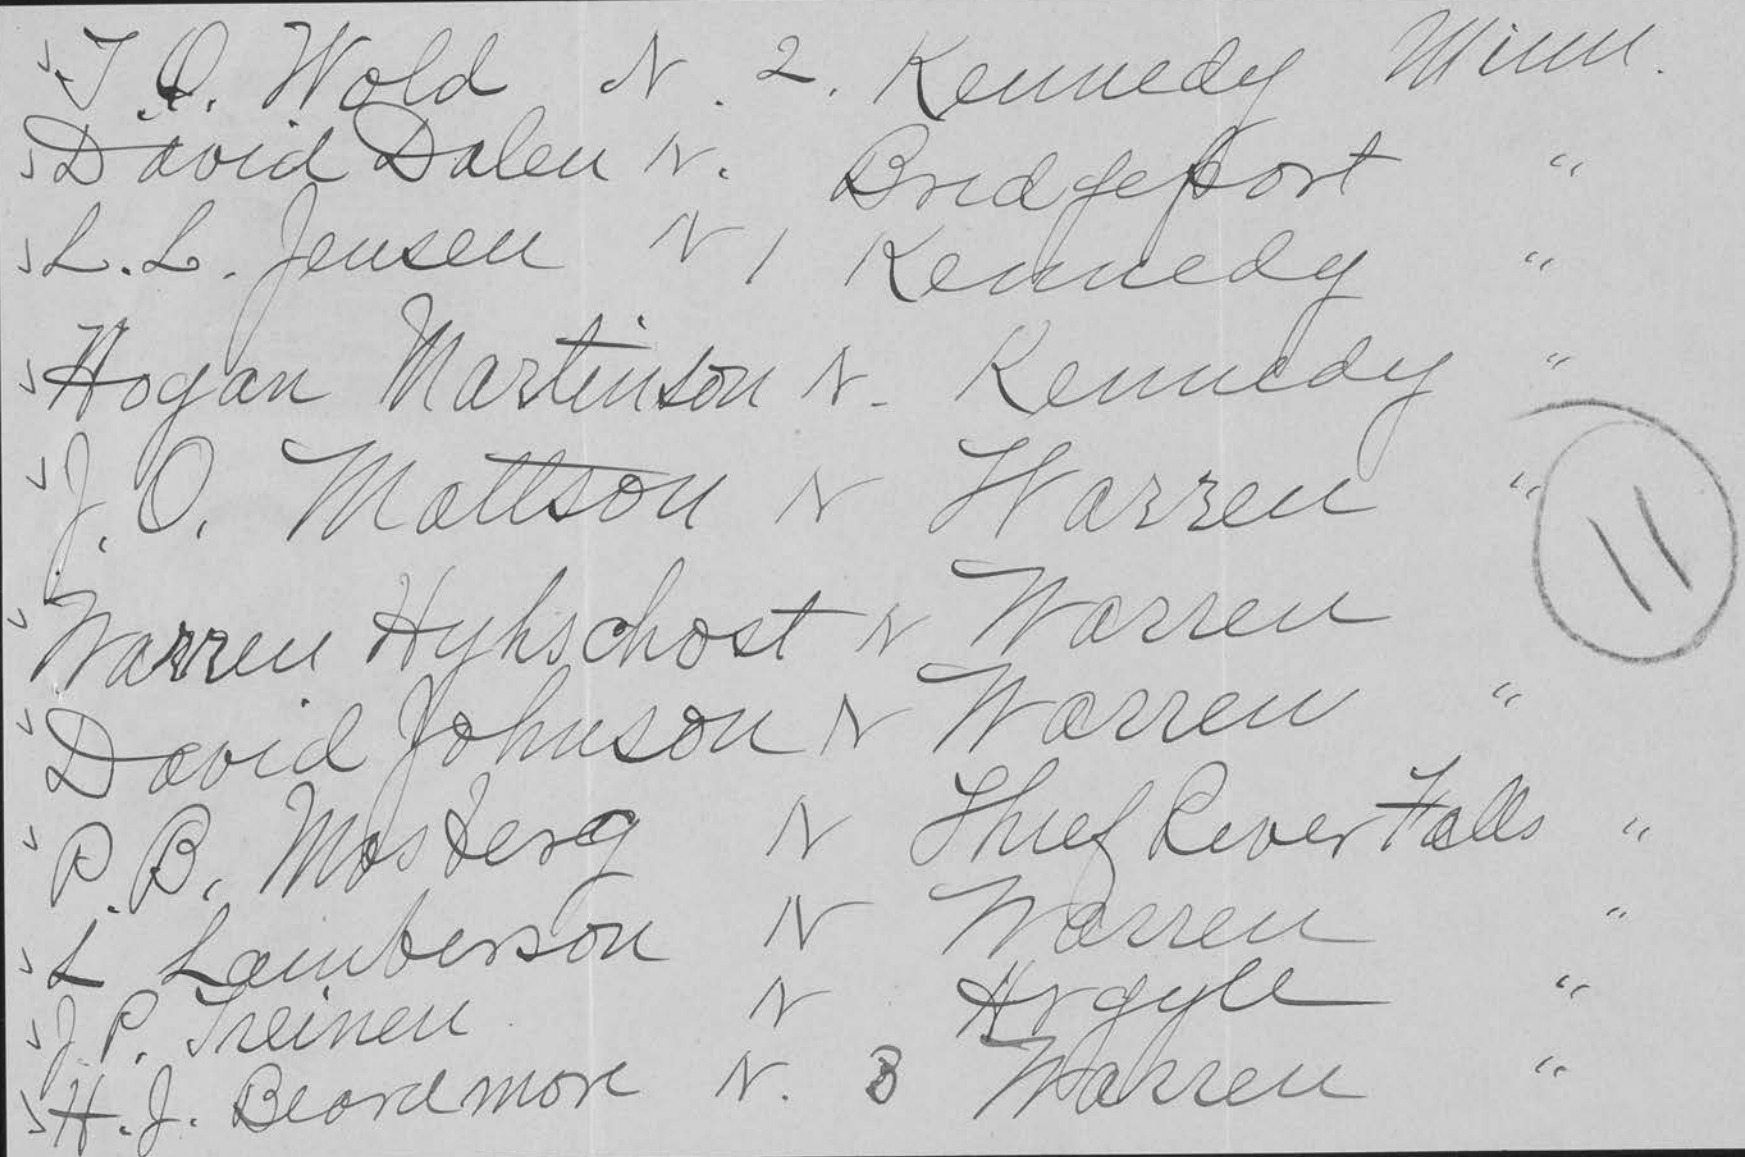 T. O. Wold N. 2. Kennedy Minn.
David Dalen N. Bridgeport "
L. L. Jensen N 1 Kennedy "
Hogan Martinson N. Kennedy "
J. O. Mattson N Warren "
11
Warren N Warren
David Johnson N Warren "
P. B. N Thief River Falls "
L Lamberson N Warren "
J. P. Treinen N Argyle "
H. J. Beardmore N. 3 Warren "